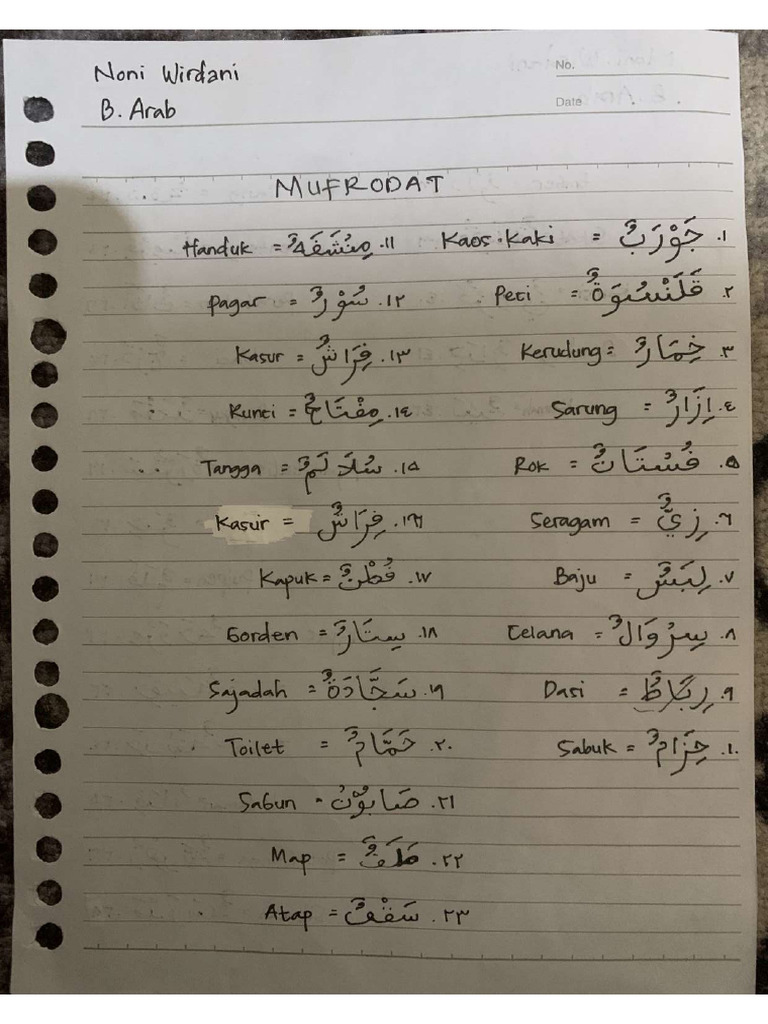 Noni Wirdani
B. Arab
No.
Date
MUFRODAT
١. جَوْرَبٌ = Kaos Kaki
٢. قَلَنْسُوَةٌ = Peci
٣. خِمَارٌ = Kerudung
٤. اِزَارٌ = Sarung
٥. فُسْتَانٌ = Rok
٦. زِيٌّ = Seragam
٧. لِبَسٌ = Baju
٨. سِرْوَالٌ = Celana
٩. رِبَاطٌ = Dasi
١٠. حِزَامٌ = Sabuk
١١. مِنْشَفَةٌ = Handuk
١٢. سُوْرٌ = Pagar
١٣. فِرَاشٌ = Kasur
١٤. مِفْتَاحٌ = Kunci
١٥. سُلَالَمٌ = Tangga
١٦. فِرَاشٌ = Kasur
١٧. قُطْنٌ = Kapuk
١٨. سِتَارٌ = Gorden
١٩. سَجَّادَةٌ = Sajadah
٢٠. حَمَّامٌ = Toilet
٢١. صَابُوْنٌ = Sabun
٢٢. مَلَفٌّ = Map
٢٣. سَقْفٌ = Atap